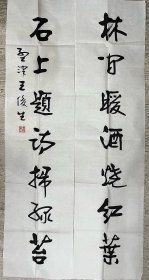 林间暖酒烧红叶
石上题诗扫绿苔
王俊生